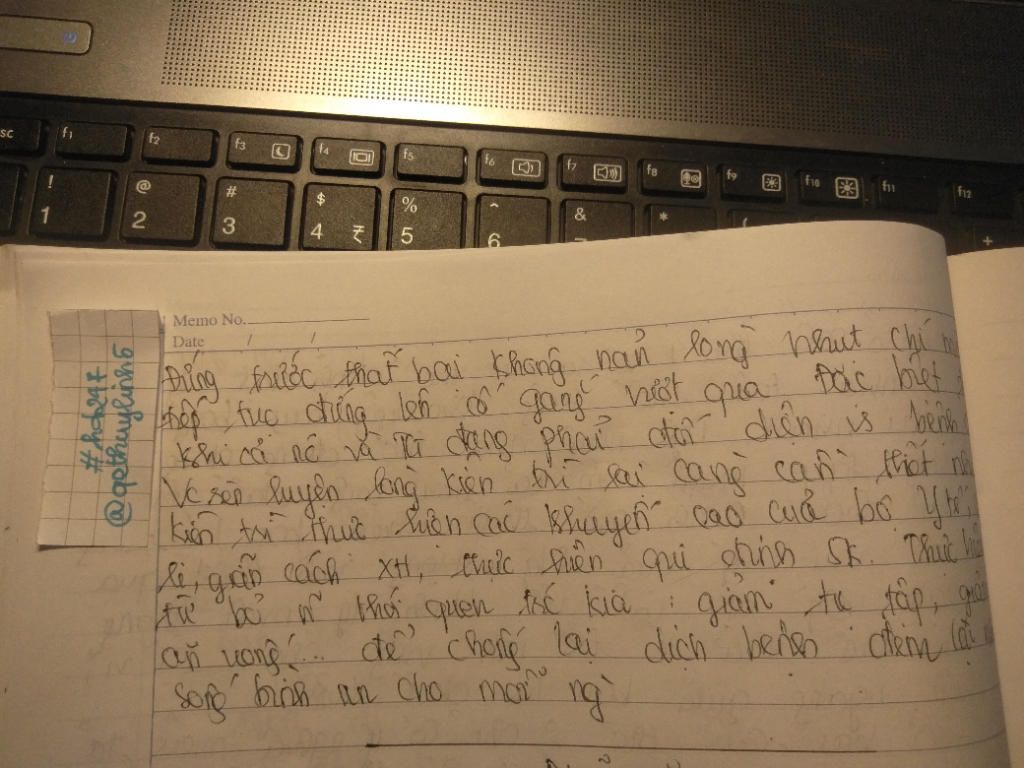 sc f1 f2 f3 f4 f5 f6 f7 f8 f9 f10 f11 f12
! 1 @ 2 # 3 $ 4 ₹ % 5 ^ 6 & 7 * ( +
Memo No.
Date / /
#hob247
@qpthuylinh5
Đứng trước thất bại không nản lòng nhụt chí
tiếp tục đứng lên cố gắng vượt qua Đặc biệt
khi cả nc và TG đang phải đối diện vs bệnh
Vc rèn luyện lòng kiên trì lại càng cần thiết
kiên trì thực hiện các khuyến cáo của bộ Y tế,
li, giãn cách XH, thực hiện qui định SK. Thực
từ bỏ n~ thói quen trc kia : giảm tụ tập,
ăn uống... để chống lại dịch bệnh đem lại
sống bình an cho mỗi ng